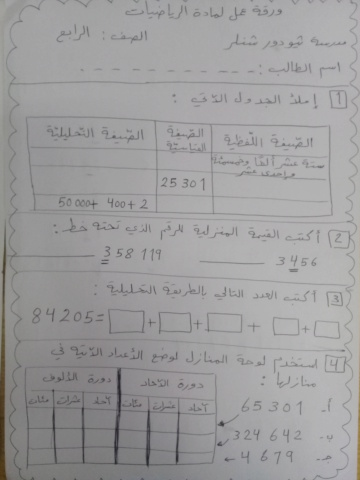 ورقة عمل لمادة الرياضيات
مدرسة ثيودور شنلر الصف : الرابع
اسم الطالب : - - - - - - - - - -
1 إملأ الجدول الآتي :
الصيغة اللفظية الصيغة القياسية الصيغة التحليلية
ستة عشر ألفا وخمسمئة وإحدى عشر
25301
50000 + 400 + 2
2 أكتب القيمة المنزلية للرقم الذي تحته خط :
3456 ــــــــ 358119 ــــــــ
3 أكتب العدد التالي بالطريقة التحليلية :
84205 = + + + +
4 استخدم لوحة المنازل لوضع الأعداد الآتية في
منازلها :
دورة الآحاد دورة الألوف
آحاد عشرات مئات آحاد عشرات مئات
أ- 65301
ب- 324642
جـ- 4679